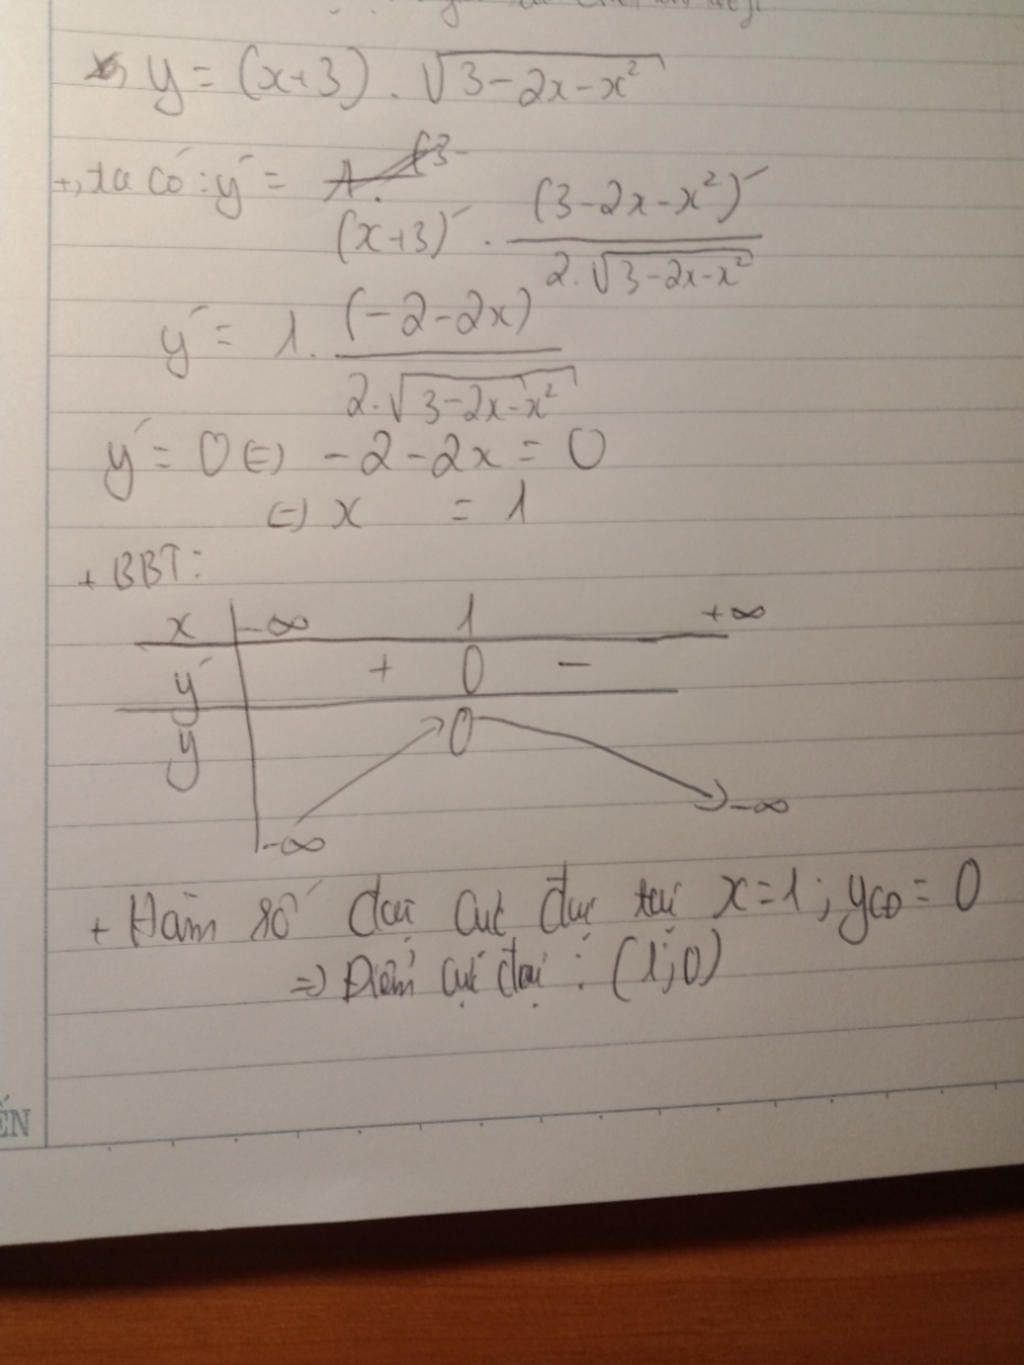 y = (x+3) . √(3-2x-x²)
+, ta có : y' = A. (3-
(x+3)' . (3-2x-x²)' / 2.√(3-2x-x²)
y' = 1. (-2-2x) / 2.√(3-2x-x²)
y' = 0 (=) -2-2x = 0
(=) x = 1
+ BBT:
x -∞ 1 +∞
y' + 0 -
y 0
-∞ -∞
+ Hàm số đại cực đại tại x=1 ; yCĐ = 0
=) Điểm cực đại : (1;0)
ẾN